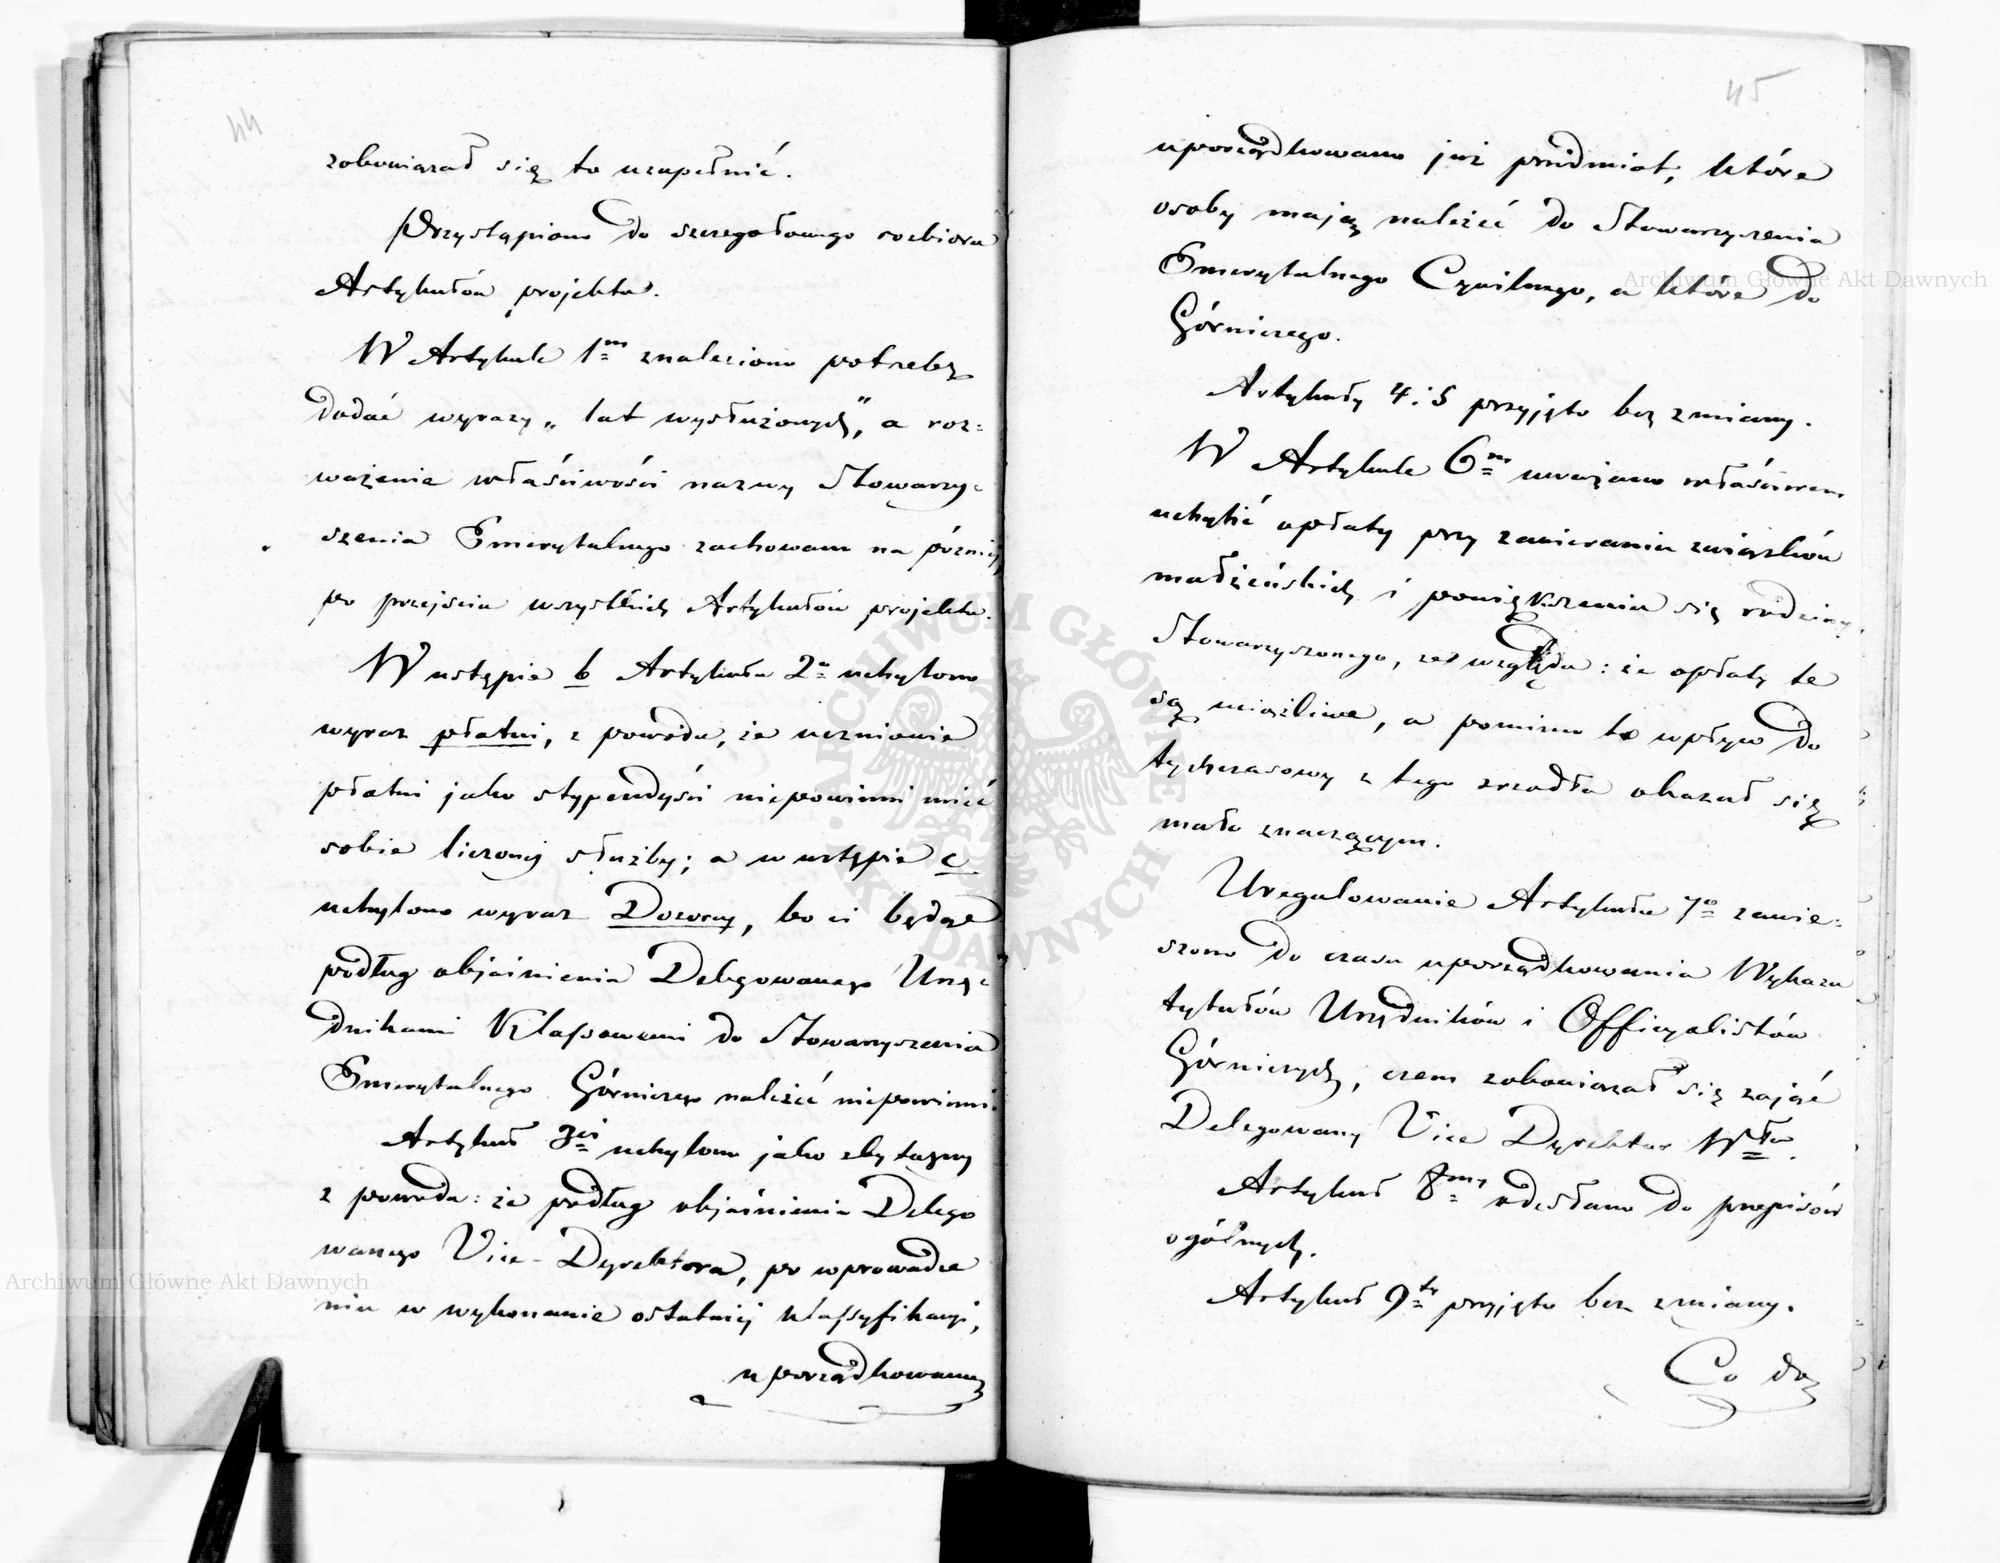 44
zobowiązał się to uzupełnić.
Przystąpiono do szczegołowego rozbioru
Artykułów projektu.
W Artykule 1m znaleziono potrzebę
dodać wyrazy „lat wysłużonych”, a roz=
ważenie właściwości nazwy Stowarzy=
szenia Emerytalnego zachowano na późnij
po przejściu wszystkich Artykułów projektu.
W ustępie b Artykułu 2o uchylono
wyraz płatni, z powodu, że uczniowie
płatni jako stypendyści niepowinni mieć
sobie liczonej służby; a w ustępie c
uchylono wyraz Dozorcy, bo ci będąc
podług objaśnienia Delegowanego Urzę=
dnikami Klassowemi do Stowarzyszenia
Emerytalnego Górniczego należéć niepowinni.
Artykuł 3ci uchylono jako zbyteczny
z powodu: że podług objaśnienia Delego
wanego Vice-Dyrektora, po wprowadze
niu w wykonanie ostatniéj klassyfikacyi,
uporządkowanu
45
uporządkowano już przedmiot, które
osoby mają należéć do Stowarzyszenia
Emerytalnego Cywilnego, a które do
Górniczego.
Artykuły 4 i 5 przyjęto bez zmiany.
W Artykule 6m uważano właściwem
uchylić opłaty przy zawieraniu związków
małżeńskich i powiększeniu się rodziny
Stowarzyszonego, ze względu: że opłaty te
są uciążliwe, a pomimo to wpływ do
tychczasowy z tego zrzodła okazał się
mało znaczącym.
Uregulowanie Artykułu 7o zawie=
szono do czasu uporządkowania Wykazu
tytułów Urzędników i Officyalistów
Górniczych, czem zobowiązał się zająć
Delegowany Vice Dyrektor Wła.
Artykuł 8my odesłano do przepisów
ogólnych.
Artykuł 9ty przyjęto bez zmiany.
Co do
Archiwum Główne Akt Dawnych
Archiwum Główne Akt Dawnych
ARCHIWUM GŁÓWNE AKT DAWNYCH